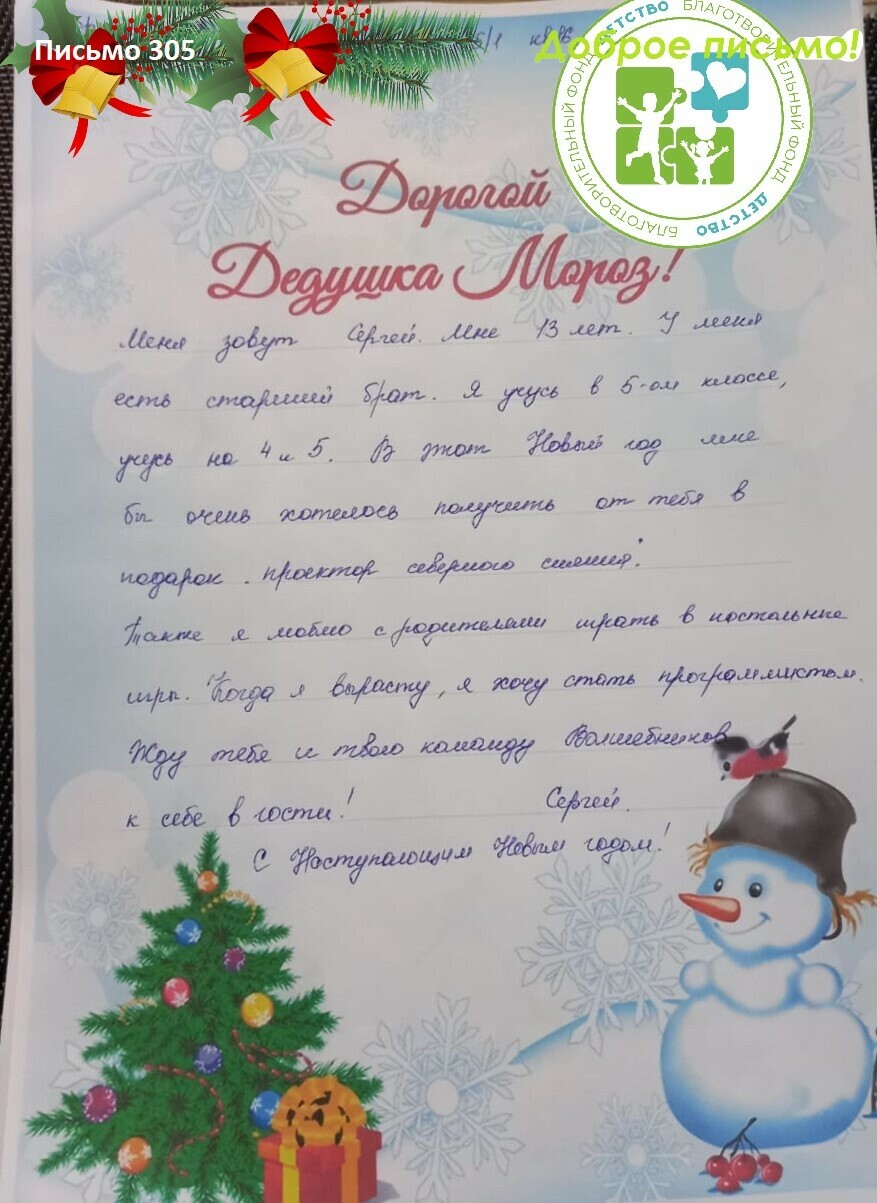 Письмо 305
5/1 кв 86
Доброе письмо!
БЛАГОТВОРИТЕЛЬНЫЙ ФОНД ДЕТСТВО БЛАГОТВОРИТЕЛЬНЫЙ ФОНД ДЕТСТВО
Дорогой
Дедушка Мороз!
Меня зовут Сергей. Мне 13 лет. У меня
есть старший брат. Я учусь в 5-ом классе,
учусь на 4 и 5. В этот Новый год мне
бы очень хотелось получить от тебя в
подарок. проектор северного сияния.
Также я люблю с родителями играть в настольные
игры. Когда я вырасту, я хочу стать программистом.
Жду тебя и твою команду Волшебников
к себе в гости! Сергей.
С Наступающим Новым годом!